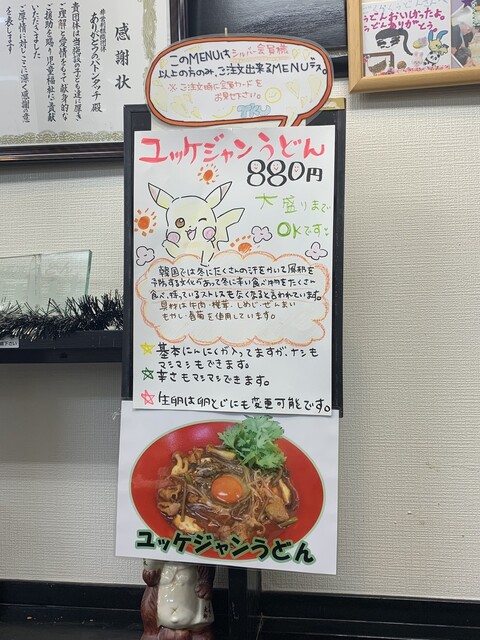 感謝状
非営利組織団体
ありがとうのバトンタッチ 殿
貴団体は当施設の子ども達に厚き
ご理解と愛情をもって献身的な
ご援助を賜り児童福祉に貢献
いただきました
ご厚情に対しここに深く感謝の意
を表します
うどんおいしかったよ。
うどんありがとう
このMENUは
以上の方のみ、ご注文出来るMENUデス。
※ご注文時に会員カードを
お見せ下さい。
ユッケジャンうどん
880円
大盛りまで
OKです
韓国では冬にたくさんの汗をかいて風邪を
予防する文化があって冬に辛い食べ物をたくさん
食べ、持っているストレスもなくなると言われています。
具材は牛肉・椎茸・しめじ・ぜんまい
もやし・春菊を使用しています。
基本にんにくが入ってますが、ナシも
マシマシもできます。
辛さもマシマシできます。
生卵は卵とじにも変更可能です。
ユッケジャンうどん